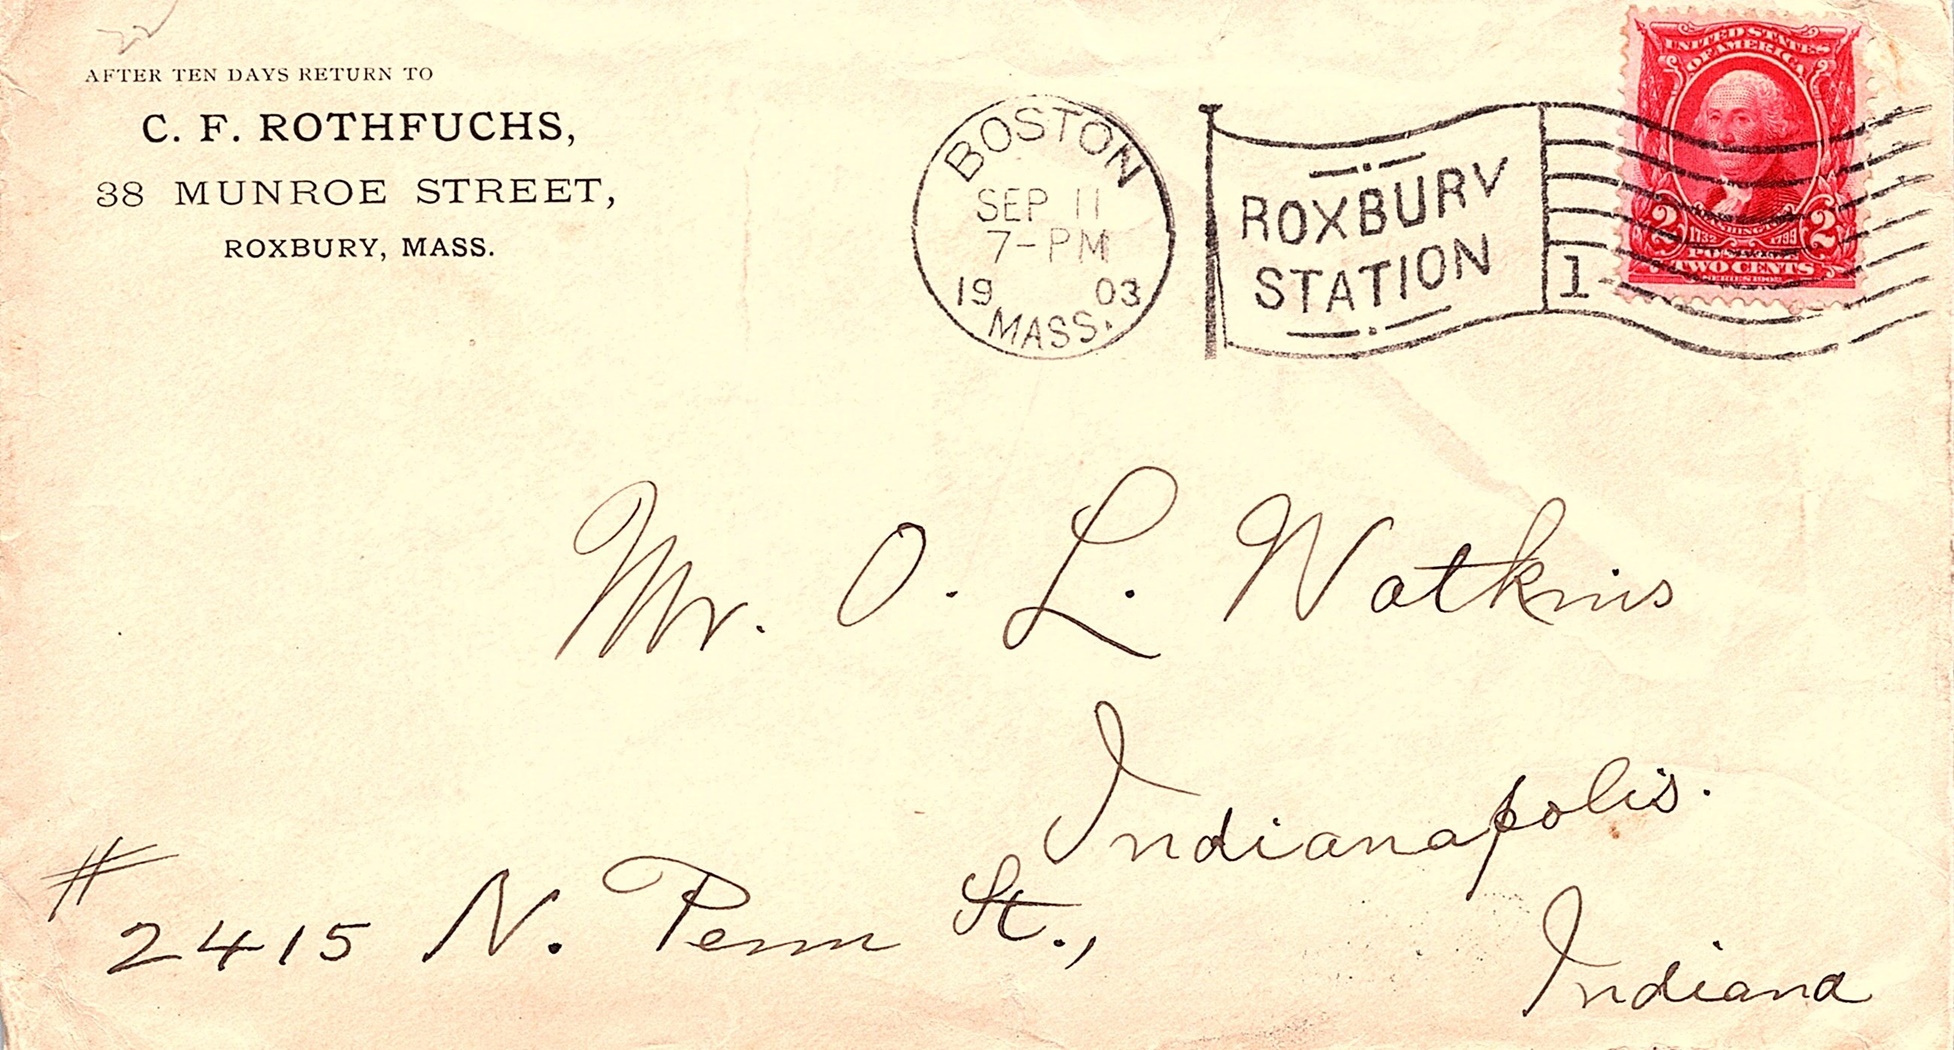 AFTER TEN DAYS RETURN TO
C. F. ROTHFUCHS,
38 MUNROE STREET,
ROXBURY, MASS.
BOSTON
SEP 11
7-PM
19 03
MASS.
ROXBURY
STATION
1
UNITED STATES
OF AMERICA
WASHINGTON
1732 1799
2 2
POSTAGE
TWO CENTS
Mr. O. L. Watkins
Indianapolis.
# 2415 N. Penn St.,
Indiana